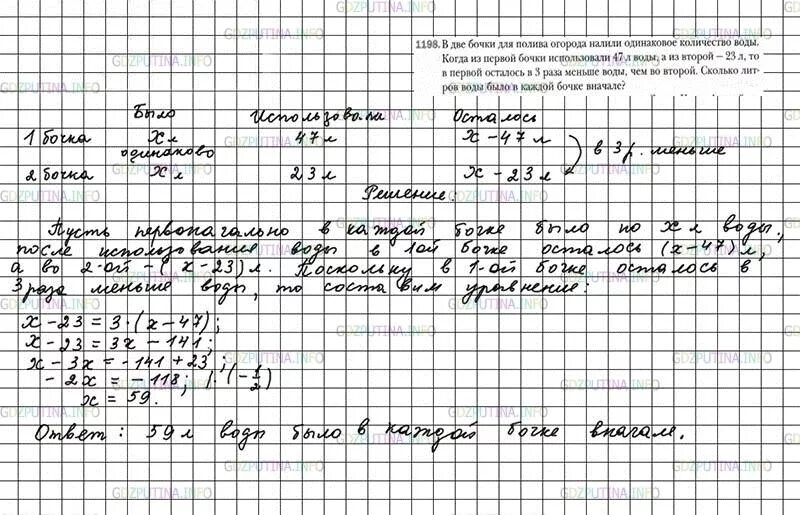 GDZPUTINA.INFO
1198. В две бочки для полива огорода налили одинаковое количество воды.
Когда из первой бочки использовали 47 л воды, а из второй – 23 л, то
в первой осталось в 3 раза меньше воды, чем во второй. Сколько лит-
ров воды было в каждой бочке вначале?
Было Использовали Осталось
1 бочка x л 47 л x - 47 л
одинаково в 3 р. меньше
2 бочка x л 23 л x - 23 л
Решение.
Пусть первоначально в каждой бочке было по x л воды,
после использования воды в 1ой бочке осталось (x-47) л,
а во 2-ой - (x-23) л. Поскольку в 1-ой бочке осталось в
3 раза меньше воды, то составим уравнение:
x - 23 = 3·(x - 47);
x - 23 = 3x - 141;
x - 3x = -141 + 23;
- 2x = -118; |·(-1/2)
x = 59.
Ответ: 59 л воды было в каждой бочке вначале.
GDZPUTINA.INFO